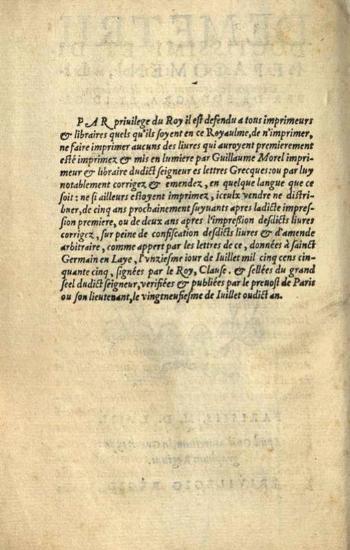 PAR privilege du Roy il est defendu a tous imprimeurs
& libraires quels qu'ils soyent en ce Royaulme, de n'imprimer,
ne faire imprimer aucuns des liures qui auroyent premierement
esté imprimez & mis en lumiere par Guillaume Morel imprimeur
& libraire dudict seigneur es lettres Grecques: ou par luy
notablement corrigez & emendez, en quelque langue que ce
soit: ne si ailleurs estoyent imprimez, iceulx vendre ne distribuer,
de cinq ans prochainement suyuants apres ladicte impression
premiere, ou de deux ans apres l'impression desdicts liures
corrigez, sur peine de confiscation desdicts liures & d'amende
arbitraire, comme appert par les lettres de ce, données à sainct
Germain en Laye, l'vnziesme iour de Iuillet mil cinq cens cinquante
cinq, signées par le Roy, Clausse. & sellées du grand
seel dudict seigneur, verifiées & publiées par le preuost de Paris
ou son lieutenant, le vingtneufiesme de Iuillet oudict an.